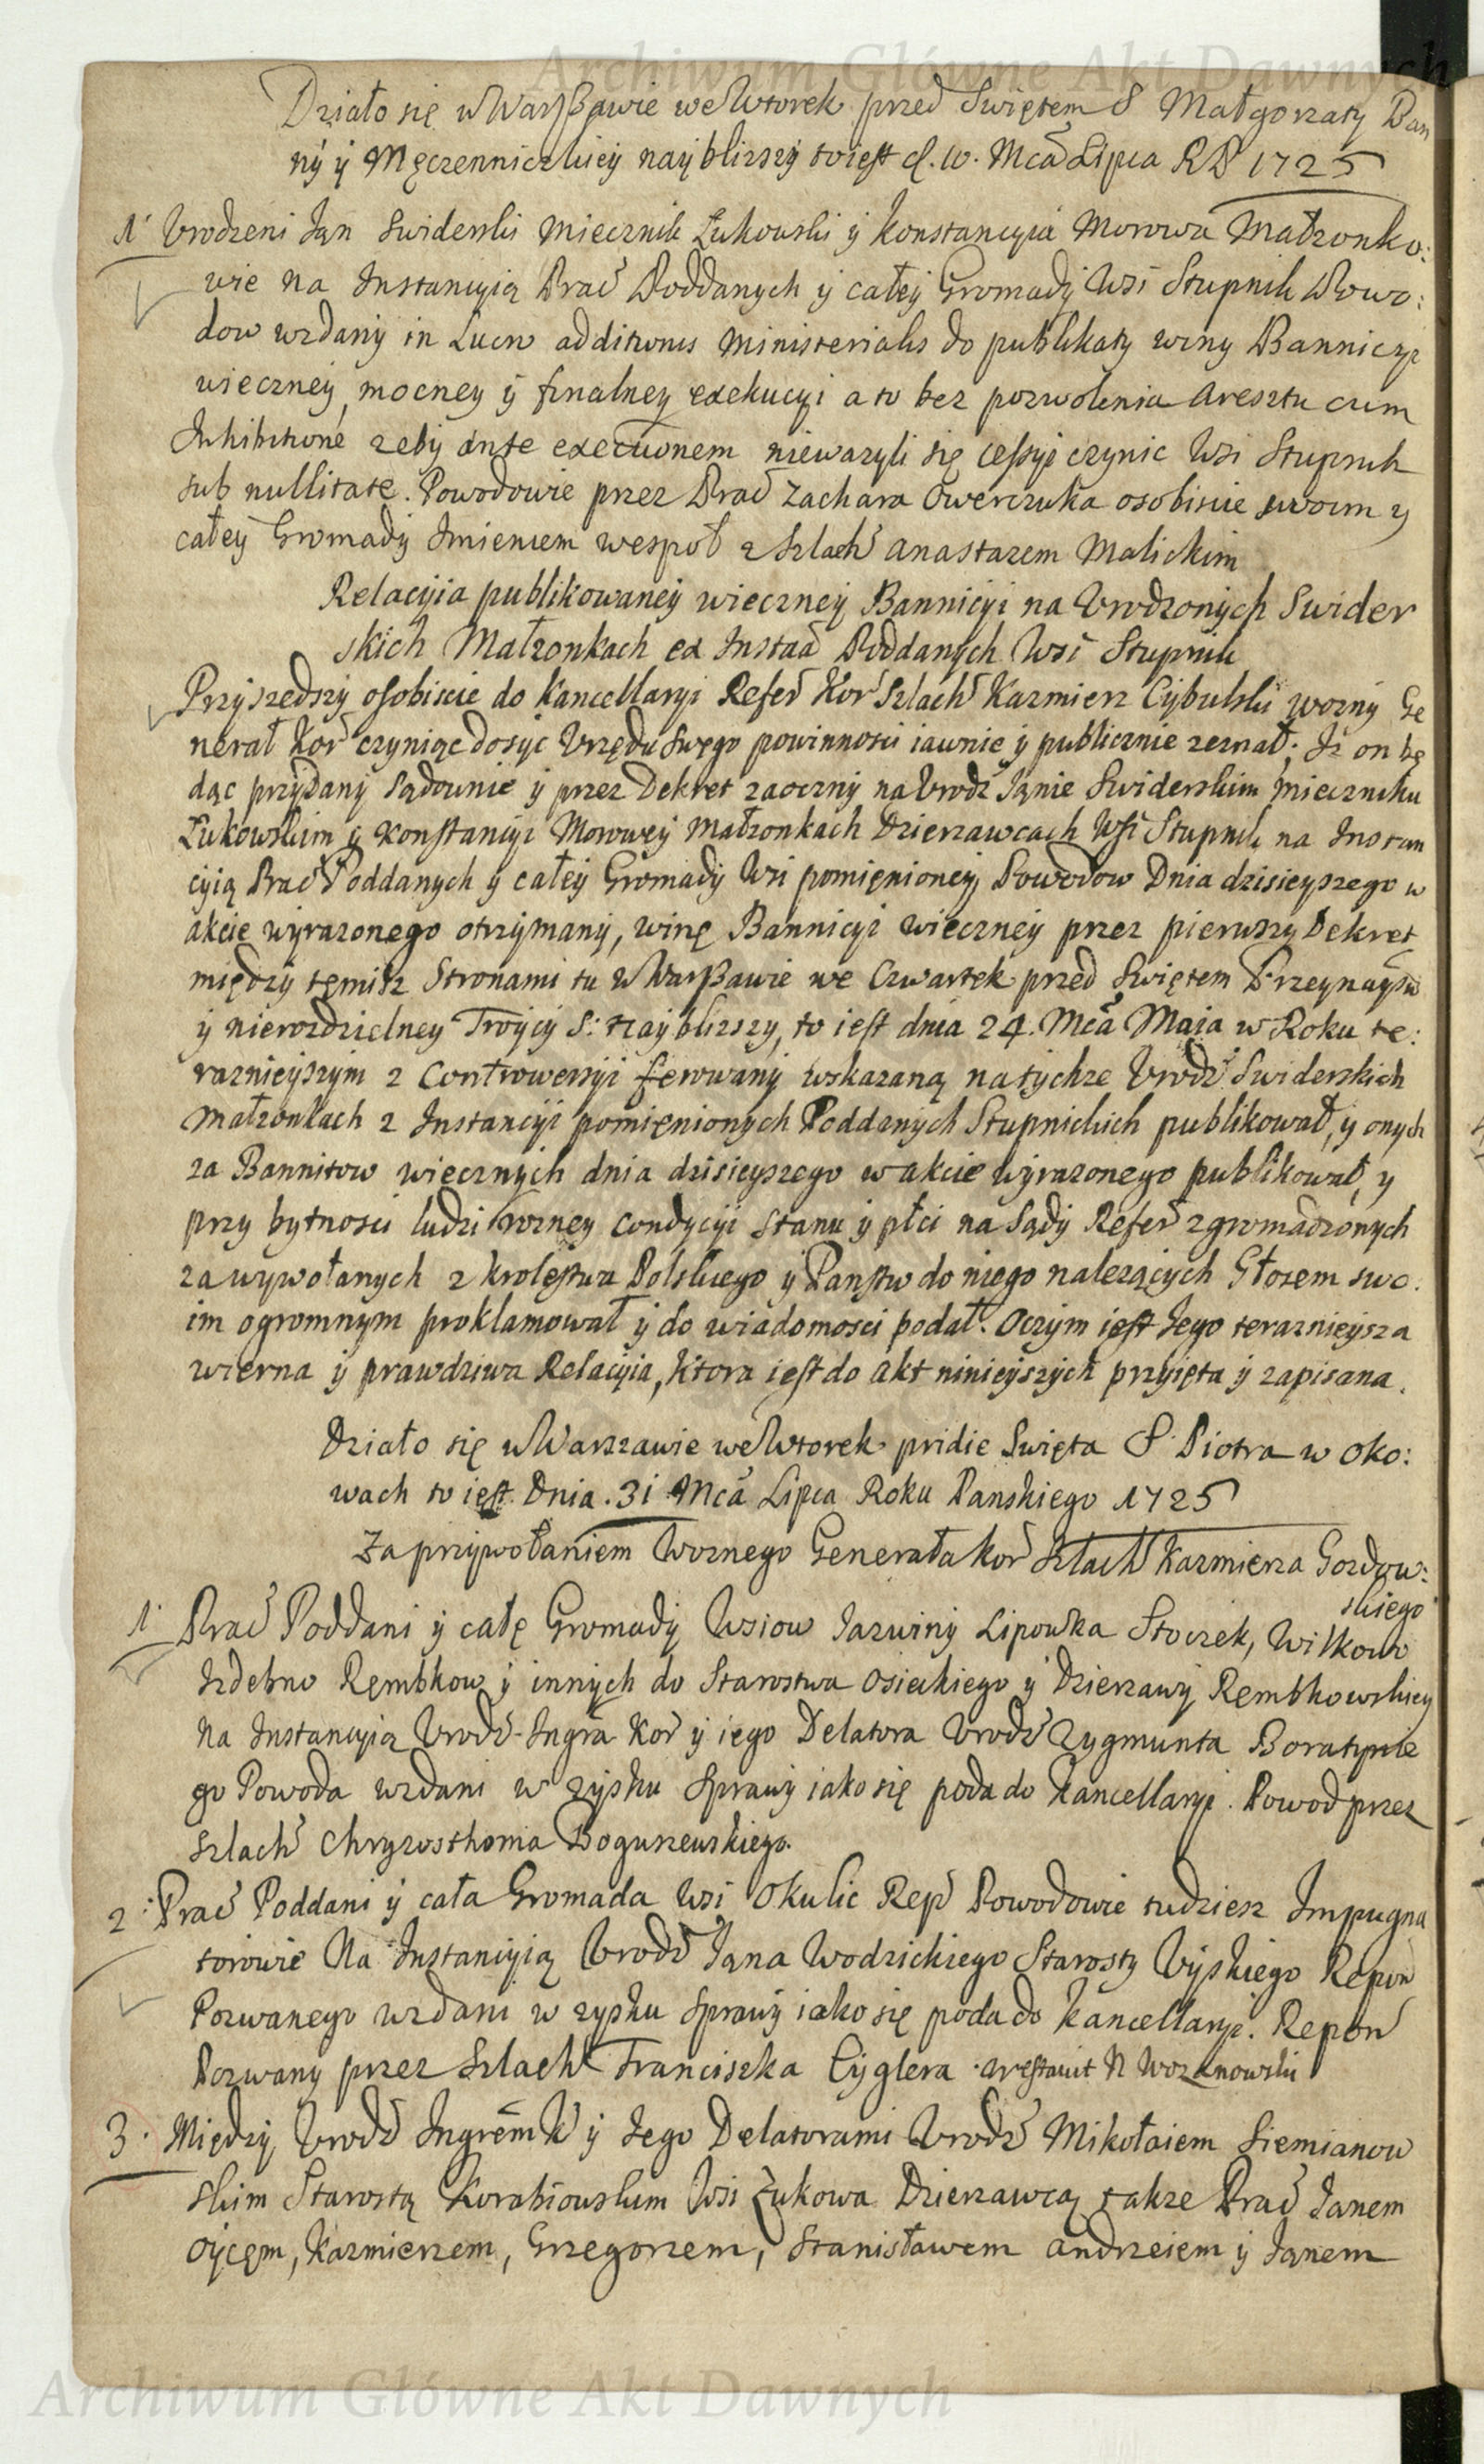 Archiwum Główne Akt Dawnych
Działo się w Warszawie we Wtorek przed Swiętem S Małgorzaty Pan
ny y Męczenniczkiey nayblizszy to iest d. 10. Mca Lipca RP 1725
1 Vrodzeni Jan Swiderski Miecznik Łukowski y Konstancyia Morowa Małzonko:
wie na Instancyią Prac Poddanych y całey Gromady Wsi Stupnik Powo:
dow wzdany in Lucro additionis Ministerialis do publikaty winy Bannicyi
wieczney, mocney y finalney exekucyi a to bez pozwolenia Aresztu cum
Inhibitione zeby ante executionem niewazyli się cessyi czynic Wsi Stupnik
sub nullitate. Powodowie przez Prac Zachara Owerczuka osobiscie swoim y
całey Gromady Imieniem wespoł z Szlach Anastazem Malickim
Relacyia publikowaney wieczney Bannicyi na Vrodzonych Swider
skich Małzonkach ex Instaa Poddanych Wsi Stupnik
Przyszedszy osobiscie do Kancellaryi Refer Kor Szlach Kazmierz Cybulski wozny Ge
nerał Kor czyniąc dosyc Vrzędu swego powinnosci iawnie y publicznie zeznał; Iz on bę
dąc przydany sądownie y przez Dekret zaoczny na Vrodz Janie Swiderskim Mieczniku
Łukowskim y Konstancyi Morowey Małzonkach Dzierzawcach Wsi Stupnik na Instan
cyią Prac Poddanych y całey Gromady Wsi pomienioney Powodow Dnia dzisieyszego w
akcie wyrazonego otrzymany, winę Bannicyi wieczney przez pierwszy Dekret
między temisz Stronami tu w Warszawie we Czwartek przed Swiętem Przenayśw
y nierozdzielney Troycy S: nayblizszy, to iest dnia 24. Mca Maia w Roku te:
raznieyszym z Controwersyi ferowany wskazaną na tychze Vrodz Swiderskich
Małzonkach z Instancyi pomienionych Poddanych Stupnickich publikował, y onych
za Bannitow wiecznych dnia dzisieyszego w akcie wyrazonego publikował, y
przy bytnosci ludzi rozney Condycyi Stanu y płci na Sądy Refer zgromadzonych
za wywołanych z krolestwa Polskiego y Panstw do niego nalezących Głosem swo:
im ogromnym proklamował y do wiadomosci podał. Oczym iest Iego teraznieysza
wierna y prawdziwa Relacyia, ktora iest do akt ninieyszych przyięta y zapisana.
Działo się w Warszawie we Wtorek pridie Swięta S. Piotra w oko:
wach to iest Dnia. 31 Mca Lipca Roku Panskiego 1725
Za przywołaniem Woznego Generała kor Szlach Kazmierza Gozdow:
skiego
1 Prac Poddani y całe Gromady Wsiow Jazwiny Lipowka Stoczek, Wilkow
Izdebno Rembkow y innych do Starostwa Osieckiego y Dzierzawy Rembkowskiey
Na Instancyią Vrodz. Ingra Kor y iego Delatora Vrodz Zygmunta Boratynie
go Powoda wzdani w zysku Sprawy iako się poda do Kancellaryi. Powod przez
Szlach Chryzosthoma Boguszewskiego.
2. Prac Poddani y cała Gromada Wsi Okulic Rep Powodowie tudziesz Impugna
torowie Na Instancyią Vrodz Jana Wodzickiego Starosty Vyskiego Repon
Pozwanego wzdani w zysku Sprawy iako się poda do Kancellaryi. Repon
Pozwany przez Szlach Franciszka Cyglera. arestavit N Wozznowski
3. Między Vrodz Ingrem K y Iego Delatorami Vrodz Mikołaiem Siemianow
skim Starostą Korabiowskim Wsi Zukowa Dzierzawcą takze Prac Janem
Oycem, Kazmierzem, Grzegorzem, Stanisławem Andrzeiem y Janem
Archiwum Główne Akt Dawnych